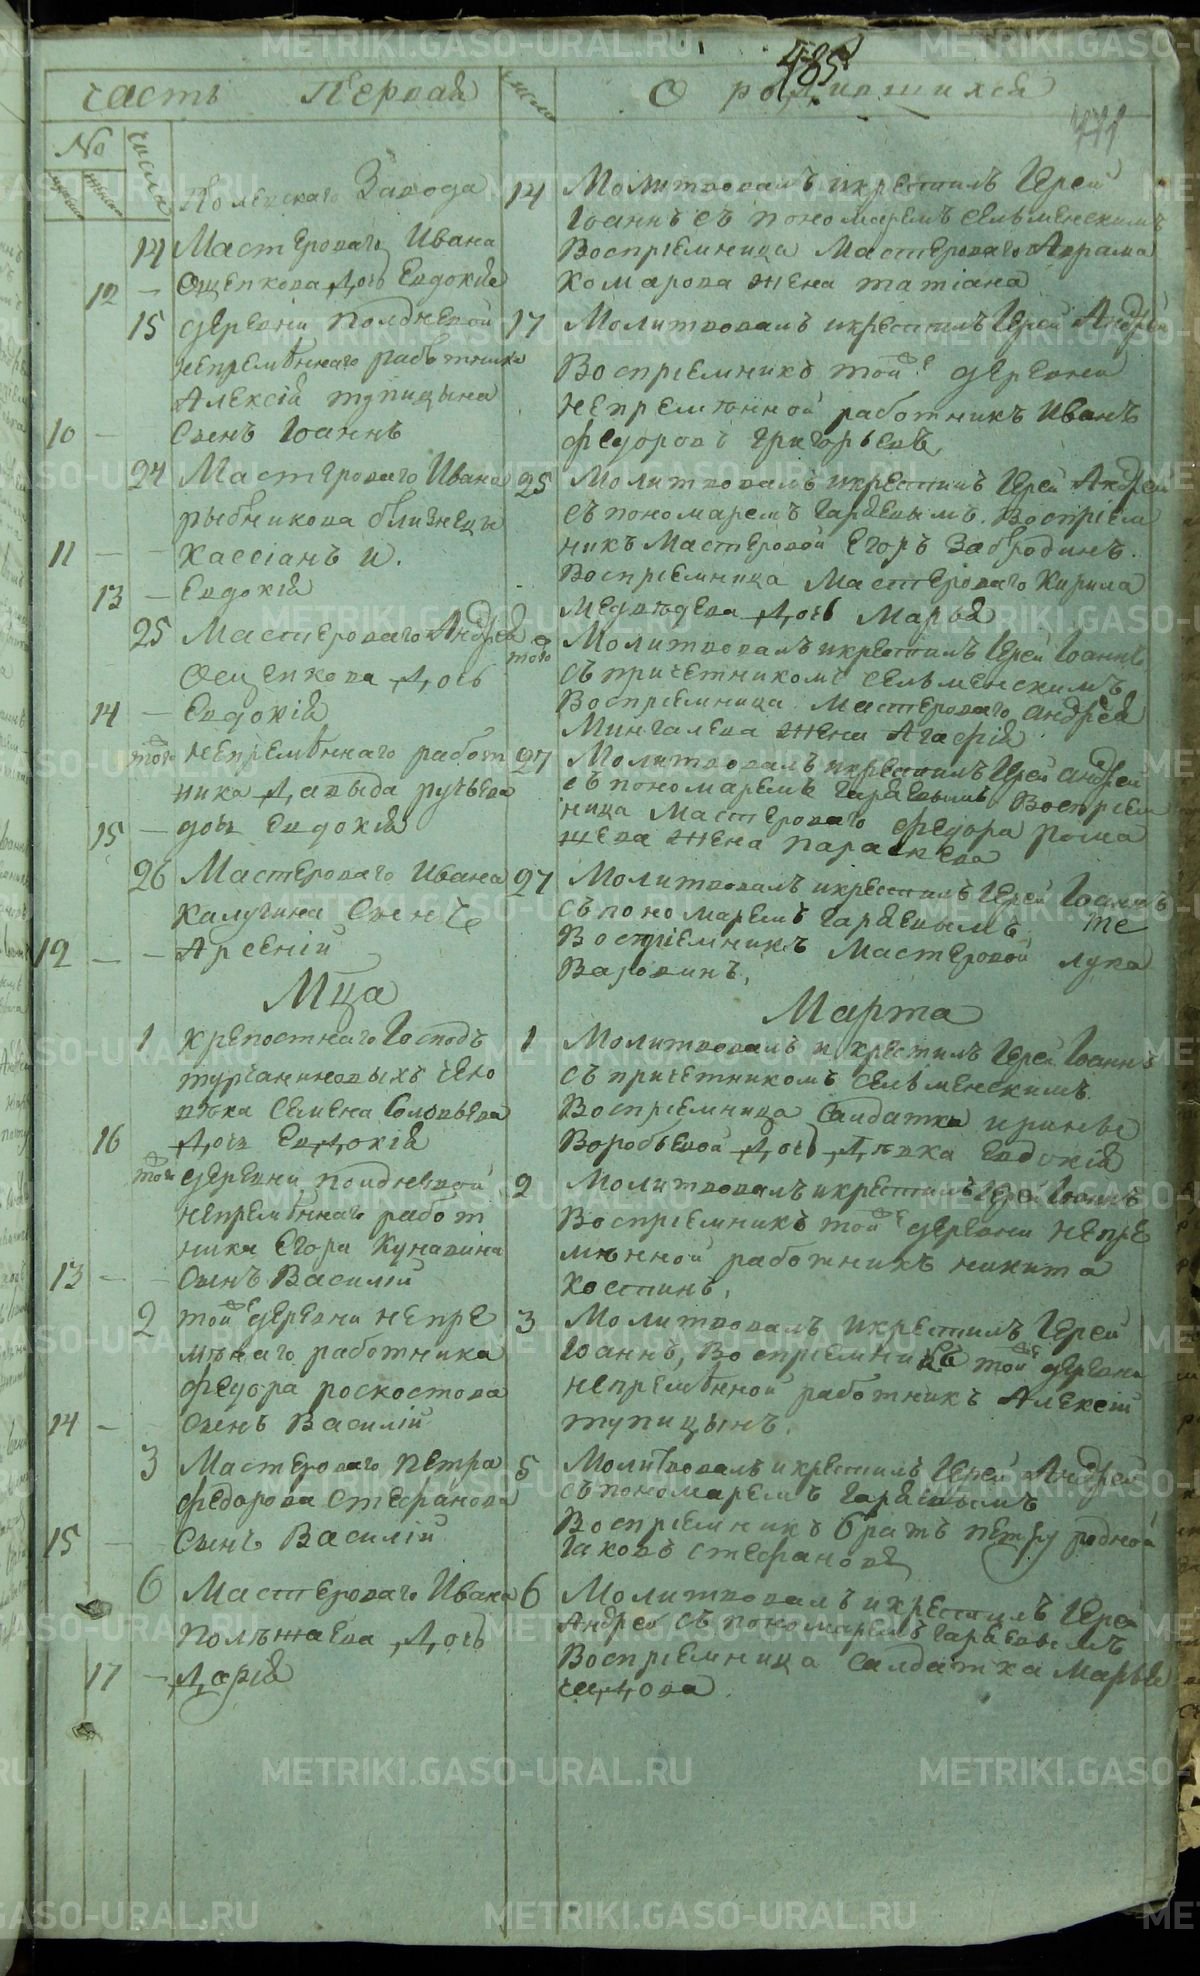 485
часть Первая
число
О родившихся
471
№
числа
Полевскаго Завода
14 Мастероваго Ивана
12 — Ощепкова дочь Евдокия
14 Молитвовалъ икрестилъ Iерей
Iоаннъ съ пономаремъ Сельменскимъ
Восприемница Мастероваго Аврама
Комарова жена татiана
15 деревни полдневой
непремѣннаго работника
Алексiя тупицына
10 — Сынъ Iоаннъ
17 Молитвовалъ икрестилъ Iерей Андрей
Восприемникъ той же деревни
непремѣнной работникъ Иванъ
федоровъ Григорьевъ,
24 Мастероваго Ивана
рыбникова близнецы
11 — — Кассiанъ и.
13 — Евдокiя
25 Молитвовалъ икрестилъ Iерей Андрей
съ пономаремъ Гаряевымъ. Восприем
никъ Мастеровой Егоръ Забродинъ.
Восприемница Мастероваго Кирила
Медвѣдева дочь Марья
25 Мастероваго Андрея
Ощепкова дочь
14 — Евдокiя
того Молитвовалъ икрестилъ Iерей Iоаннъ
съ причетникомъ Сельменскимъ
Восприемница Мастероваго андрея
Мингалева жена Агафiя
того непремѣннаго работ
ника Давыда ручьева
15 — дочь Евдокiя
27 Молитвовалъ икрестилъ Iерей андрей
съ пономаремъ Гаряевымъ Восприем
ница Мастероваго федора рома
жена параскева
26 Мастероваго Ивана
Калугина Сынъ
12 — — Арсенiй
27 Молитвовалъ икрестилъ Iерей Iоаннъ
съ пономаремъ Гаряевымъ те
Восприемникъ Мастеровой лука
Мца Марта
1 крепостнаго Господъ
турчаниновыхъ чело
вѣка Семена Соловьева
16 дочь Евдокiя
1 Молитвовалъ и крестилъ Iерей Iоаннъ
съ причетникомъ Сельменскимъ
Восприемница Салдатки ирины
Воробьевой дочь дѣвка Евдокiя
той деревни полдневой
непремѣннаго работ
ника Егора Кунавина
13 — — Сынъ Василiй
2 Молитвовалъ икрестилъ Iерей Iоаннъ
Восприемникъ той же деревни непре
мѣнной работникъ никита
Костинъ,
2 той же деревни непре
мѣнаго работника
федора роскостова
14 — Сынъ Василiй
3 Молитвовалъ икрестилъ Iерей
Iоаннъ, Восприемникъ той деревни
непремѣнной работникъ Алексiй
тупицынъ.
3 Мастероваго петра
федорова Стефанова
15 — Сынъ Василiй
5 Молитвовалъ икрестилъ Iерей Андрей
съ пономаремъ Гаряевымъ
Восприемникъ братъ петру родной
Iаковъ стефановъ
6 Мастероваго Ивана
Полѣжаева дочь
17 — Дарiя
6 Молитвовалъ икрестилъ Iерей
Андрей съ пономаремъ Гаряевымъ
Восприемница Салдатка Марья
METRIKI.GASO-URAL.RU